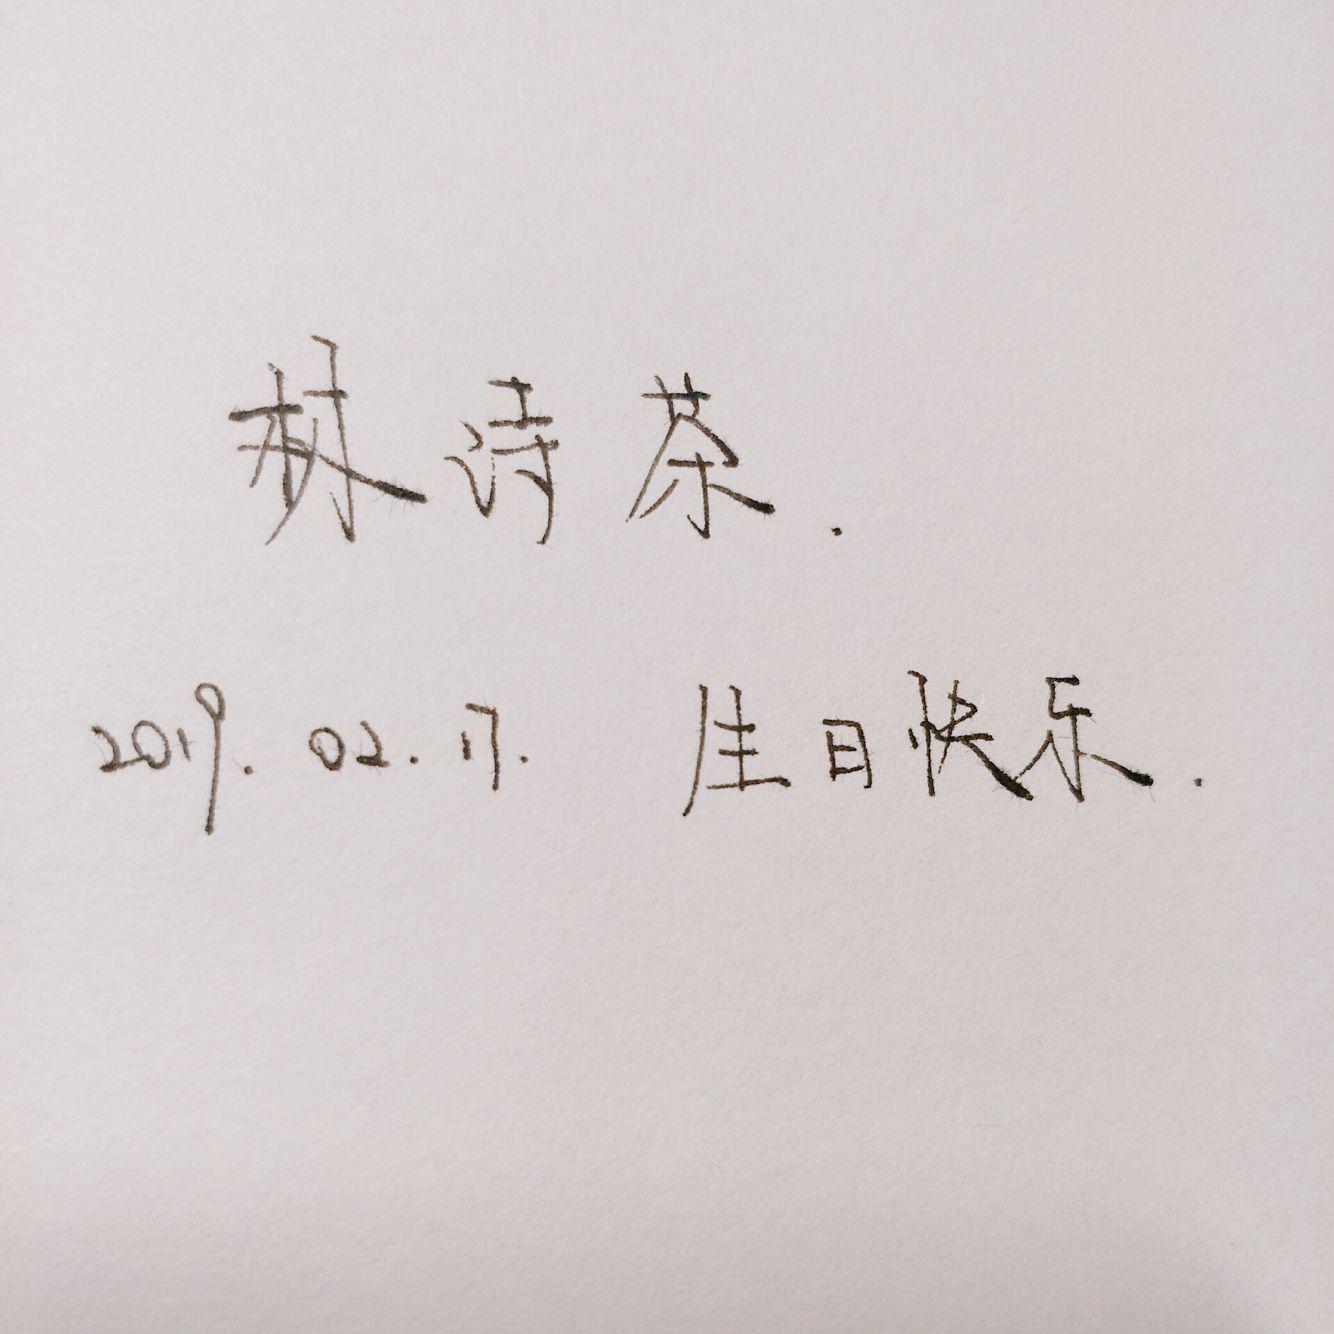 林诗茶.
2019.02.17. 生日快乐.